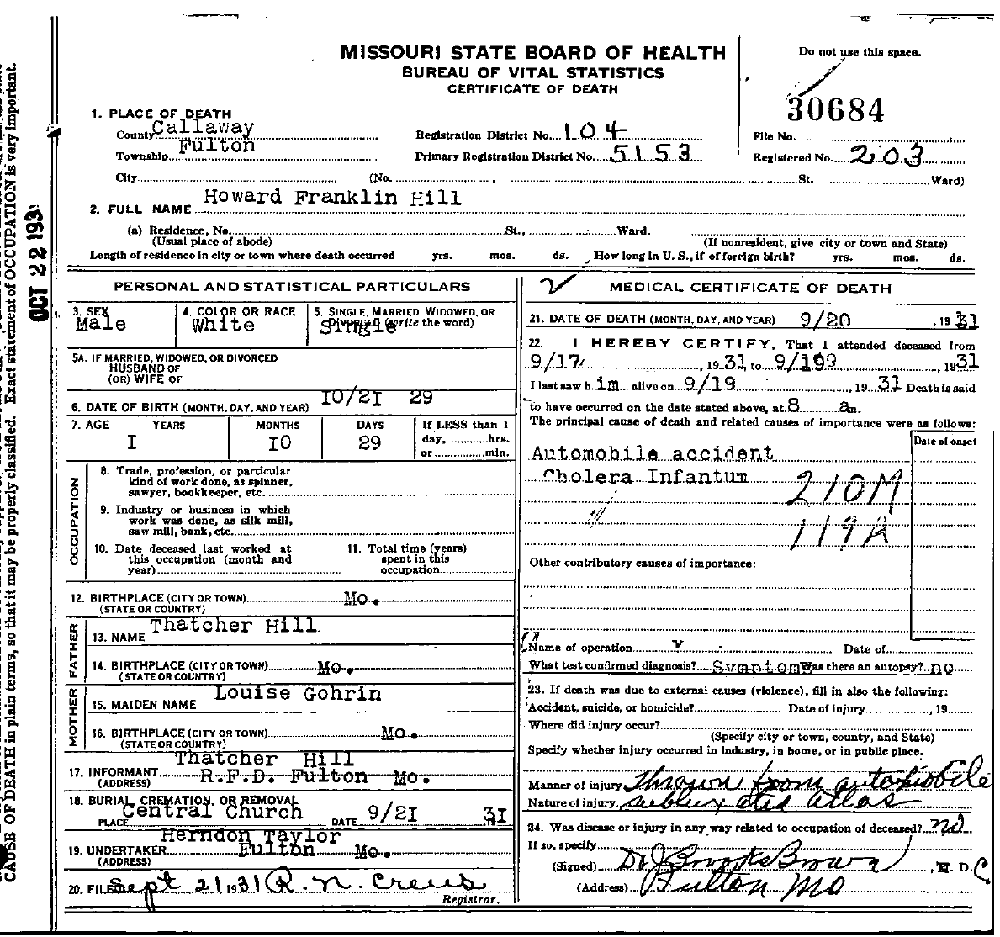 MISSOURI STATE BOARD OF HEALTH
BUREAU OF VITAL STATISTICS
CERTIFICATE OF DEATH
Do not use this space.
30684
1. PLACE OF DEATH
County Callaway
Township Fulton
City (No. St. Ward)
Registration District No. 104
Primary Registration District No. 5153
File No.
Registered No. 203
2. FULL NAME Howard Franklin Hill
(a) Residence, No. St., Ward.
(Usual place of abode) (If nonresident, give city or town and State)
Length of residence in city or town where death occurred yrs. mos. ds. How long in U. S., if of foreign birth? yrs. mos. ds.
OCT 22 193
CAUSE OF DEATH in plain terms, so that it may be properly classified. Exact statement of OCCUPATION is very important.
PERSONAL AND STATISTICAL PARTICULARS
3. SEX Male
4. COLOR OR RACE White
5. SINGLE, MARRIED WIDOWED, OR DIVORCED (write the word) Single
5A. IF MARRIED, WIDOWED, OR DIVORCED
HUSBAND OF
(OR) WIFE OF
6. DATE OF BIRTH (MONTH, DAY, AND YEAR) 10/21 29
7. AGE YEARS MONTHS DAYS If LESS than 1
1 10 29 day, hrs.
or min.
OCCUPATION
8. Trade, profession, or particular
kind of work done, as spinner,
sawyer, bookkeeper, etc.
9. Industry or business in which
work was done, as silk mill,
saw mill, bank, etc.
10. Date deceased last worked at
this occupation (month and
year)
11. Total time (years)
spent in this
occupation
12. BIRTHPLACE (CITY OR TOWN) Mo.
(STATE OR COUNTRY)
FATHER
13. NAME Thatcher Hill
14. BIRTHPLACE (CITY OR TOWN) Mo.
(STATE OR COUNTRY)
MOTHER
15. MAIDEN NAME Louise Gohrin
16. BIRTHPLACE (CITY OR TOWN) Mo.
(STATE OR COUNTRY)
17. INFORMANT Thatcher Hill
(ADDRESS) R.F.D. Fulton Mo.
18. BURIAL, CREMATION, OR REMOVAL
PLACE Central Church DATE 9/21 31
19. UNDERTAKER Herndon Taylor
(ADDRESS) Fulton Mo.
20. FILED Sept 21 1931 R. N. Crews
Registrar.
MEDICAL CERTIFICATE OF DEATH
21. DATE OF DEATH (MONTH, DAY, AND YEAR) 9/20 , 1931
22. I HEREBY CERTIFY, That I attended deceased from
9/17 , 1931 to 9/19 , 1931
I last saw him alive on 9/19 , 1931 Death is said
to have occurred on the date stated above, at 8 a m.
The principal cause of death and related causes of importance were as follows:
Date of onset
Automobile accident
Cholera Infantum 210M
119A
Other contributory causes of importance:
Name of operation Date of
What test confirmed diagnosis? Symptoms Was there an autopsy? no
23. If death was due to external causes (violence), fill in also the following:
Accident, suicide, or homicide? Date of injury , 19
Where did injury occur?
(Specify city or town, county, and State)
Specify whether injury occurred in industry, in home, or in public place.
Manner of injury thrown from automobile
Nature of injury subluxated atlas
24. Was disease or injury in any way related to occupation of deceased? no
If so, specify
(Signed) Dr J Brooks Brown , M. D C
(Address) Fulton Mo